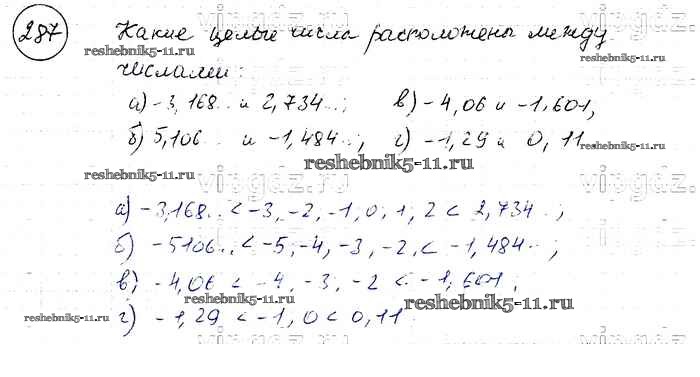 287 Какие целые числа расположены между
reshebnik5-11.ru
числами:
а) -3,168.. и 2,734...; в) -4,06 и -1,601,
б) 5,106.. и -1,484..; г) -1,29 и 0,11
reshebnik5-11.ru
reshebnik5-11.ru
vipgdz.ru
а) -3,168.. < -3, -2, -1, 0, 1, 2 < 2,734..;
б) -5106.. < -5, -4, -3, -2, < -1,484..;
в) -4,06 < -4, -3, -2 < -1,601,
reshebnik5-11.ru
reshebnik5-11.ru
г) -1,29 < -1, 0 < 0,11
reshebnik5-11.ru